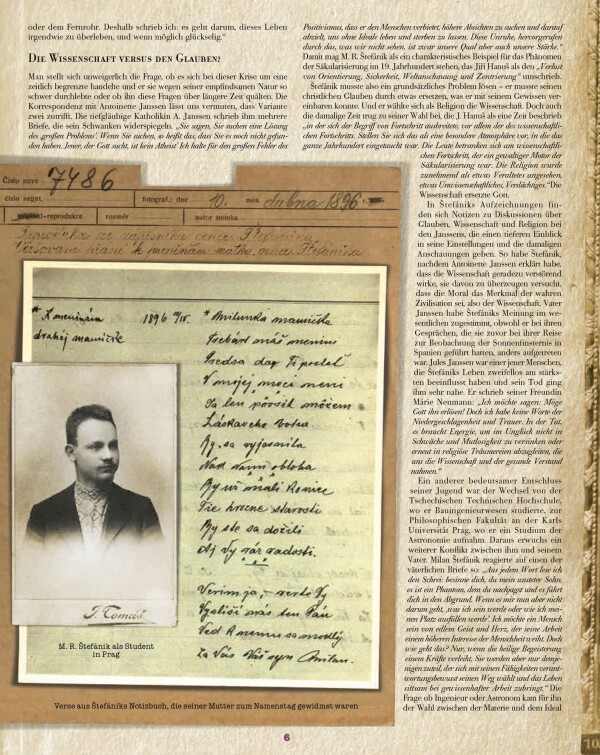 oder dem Fernrohr. Deshalb schrieb ich: es geht darum, dieses Leben
irgendwie zu überleben, und wenn möglich glückselig."
DIE WISSENSCHAFT VERSUS DEN GLAUBEN?
Man stellt sich unweigerlich die Frage, ob es sich bei dieser Krise um eine
zeitlich begrenzte handelte und er sie wegen seiner empfindsamen Natur so
schwer durchlebte oder ob ihn diese Fragen über längere Zeit quälten. Die
Korrespondenz mit Antoinette Janssen lässt uns vermuten, dass Variante
zwei zutrifft. Die tiefgläubige Katholikin A. Janssen schrieb ihm mehrere
Briefe, die sein Schwanken widerspiegeln. „Sie sagen, Sie suchen eine Lösung
des ‚großen Problems'. Wenn Sie suchen, so heißt das, dass Sie es noch nicht gefun-
den haben. Jener, der Gott sucht, ist kein Atheist' Ich halte für den großen Fehler des
Positivismus, dass er den Menschen verbietet, höhere Absichten zu suchen und darauf
abzielt, uns ohne Ideale leben und sterben zu lassen. Diese Unruhe, hervorgerufen
durch das, was wir nicht sehen, ist zwar unsere Qual aber auch unsere Stärke."
Damit mag M. R. Štefánik als ein charakteristisches Beispiel für das Phänomen
der Säkularisierung im 19. Jahrhundert gelten, das Jiří Hanuš als den „Verlust
von Orientierung, Sicherheit, Weltanschauung und Zentrierung" umschrieb.
Štefánik musste also ein grundsätzliches Problem lösen – er musste seinen
christlichen Glauben durch etwas ersetzen, was er mit seinem Gewissen ver-
einbaren konnte. Und er wählte sich als Religion die Wissenschaft. Doch auch
die damalige Zeit trug zu seiner Wahl bei, die J. Hanuš als eine Zeit beschreibt
„in der sich der Begriff von Fortschritt ausbreitete, vor allem der des wissenschaftli-
chen Fortschritts. Stellen Sie sich das als eine besondere Atmosphäre vor, in die das
ganze Jahrhundert eingetaucht war. Die Leute betranken sich am wissenschaftli-
chen Fortschritt, der ein gewaltiger Motor der
Säkularisierung war. Die Religion wurde
zunehmend als etwas Veraltetes angesehen,
etwas Unwissenschaftliches, Verdächtiges."Die
Wissenschaft ersetzte Gott.
In Štefániks Aufzeichnungen fin-
den sich Notizen zu Diskussionen über
Glauben, Wissenschaft und Religion bei
den Janssens, die einen tieferen Einblick
in seine Einstellungen und die damaligen
Anschauungen geben. So habe Štefánik,
nachdem Antoinette Janssen erklärt habe,
dass die Wissenschaft geradezu verstörend
wirke, sie davon zu überzeugen versucht,
dass die Moral das Merkmal der wahren
Zivilisation sei, also der Wissenschaft. Vater
Janssen habe Štefániks Meinung im we-
sentlichen zugestimmt, obwohl er bei ihren
Gesprächen, die sie zuvor bei ihrer Reise
zur Beobachtung der Sonnenfinsternis in
Spanien geführt hatten, anders aufgetreten
war. Jules Janssen war einer jener Menschen,
die Štefániks Leben zweifellos am stärks-
ten beeinflusst haben und sein Tod ging
ihm sehr nahe. Er schrieb seiner Freundin
Márie Neumann: „Ich möchte sagen: Möge
Gott ihn erlösen! Doch ich habe keine Worte der
Niedergeschlagenheit und Trauer. In der Tat,
es braucht Energie, um im Unglück nicht in
Schwäche und Mutlosigkeit zu versinken oder
erneut in religiöse Träumereien abzugleiten, die
uns die Wissenschaft und der gesunde Verstand
nahmen."
Ein anderer bedeutsamer Entschluss
seiner Jugend war der Wechsel von der
Tschechischen Technischen Hochschule,
wo er Bauingenieurwesen studierte, zur
Philosophischen Fakultät an der Karls
Universität Prag, wo er ein Studium der
Astronomie aufnahm. Daraus erwuchs ein
weiterer Konflikt zwischen ihm und seinem
Vater. Milan Štefánik reagierte auf einen der
väterlichen Briefe so: „Aus jedem Wort lese ich
den Schrei: besinne dich, du mein unsteter Sohn,
es ist ein Phantom, dem du nachjagst und es führt
dich in den Abgrund. Wenn es mir nun aber nicht
darum geht, ‚was ich sein werde oder wie ich mei-
nen Platz ausfüllen werde'. Ich möchte ein Mensch
sein von edlem Geist und Herz, der seine Arbeit
einem höheren Interesse der Menschheit weiht. Doch
wie geht das? Nur, wenn die heilige Begeisterung
einem Kräfte verleiht. Sie werden aber nur demje-
nigen zuteil, der sich mit seinen Fähigkeiten verant-
wortungsbewusst seinen Weg wählt und das Leben
sittsam bei gewissenhafter Arbeit zubringt." Die
Frage ob Ingenieur oder Astronom kam für ihn
der Wahl zwischen der Materie und dem Ideal
Číslo nové 7486
číslo negat.
fotograf.: dne 10. měs. dubna 1896 r.
reprodukce rozměr autor snímku
Veršované přání k
* K meninám
drahej mamičke
1896
* Milunká mamička
Trebárs máš meniny
Predsa dar Ti poslať
V mojej moci není
Ja len
Láskavého Boha
By sa vyjasnila
Nad Vami obloha
By už mali konice
starosti
By ste sa dožili
Aj Vy radosti.
Verím ja, verte Vy
Vyslyší nás ten Pán
Keď k nemu sa modlí
Za Vás Váš syn Milan.
J. Tomáš
M. R. Štefánik als Student
in Prag
Verse aus Štefániks Notizbuch, die seiner Mutter zum Namenstag gewidmet waren
6
10